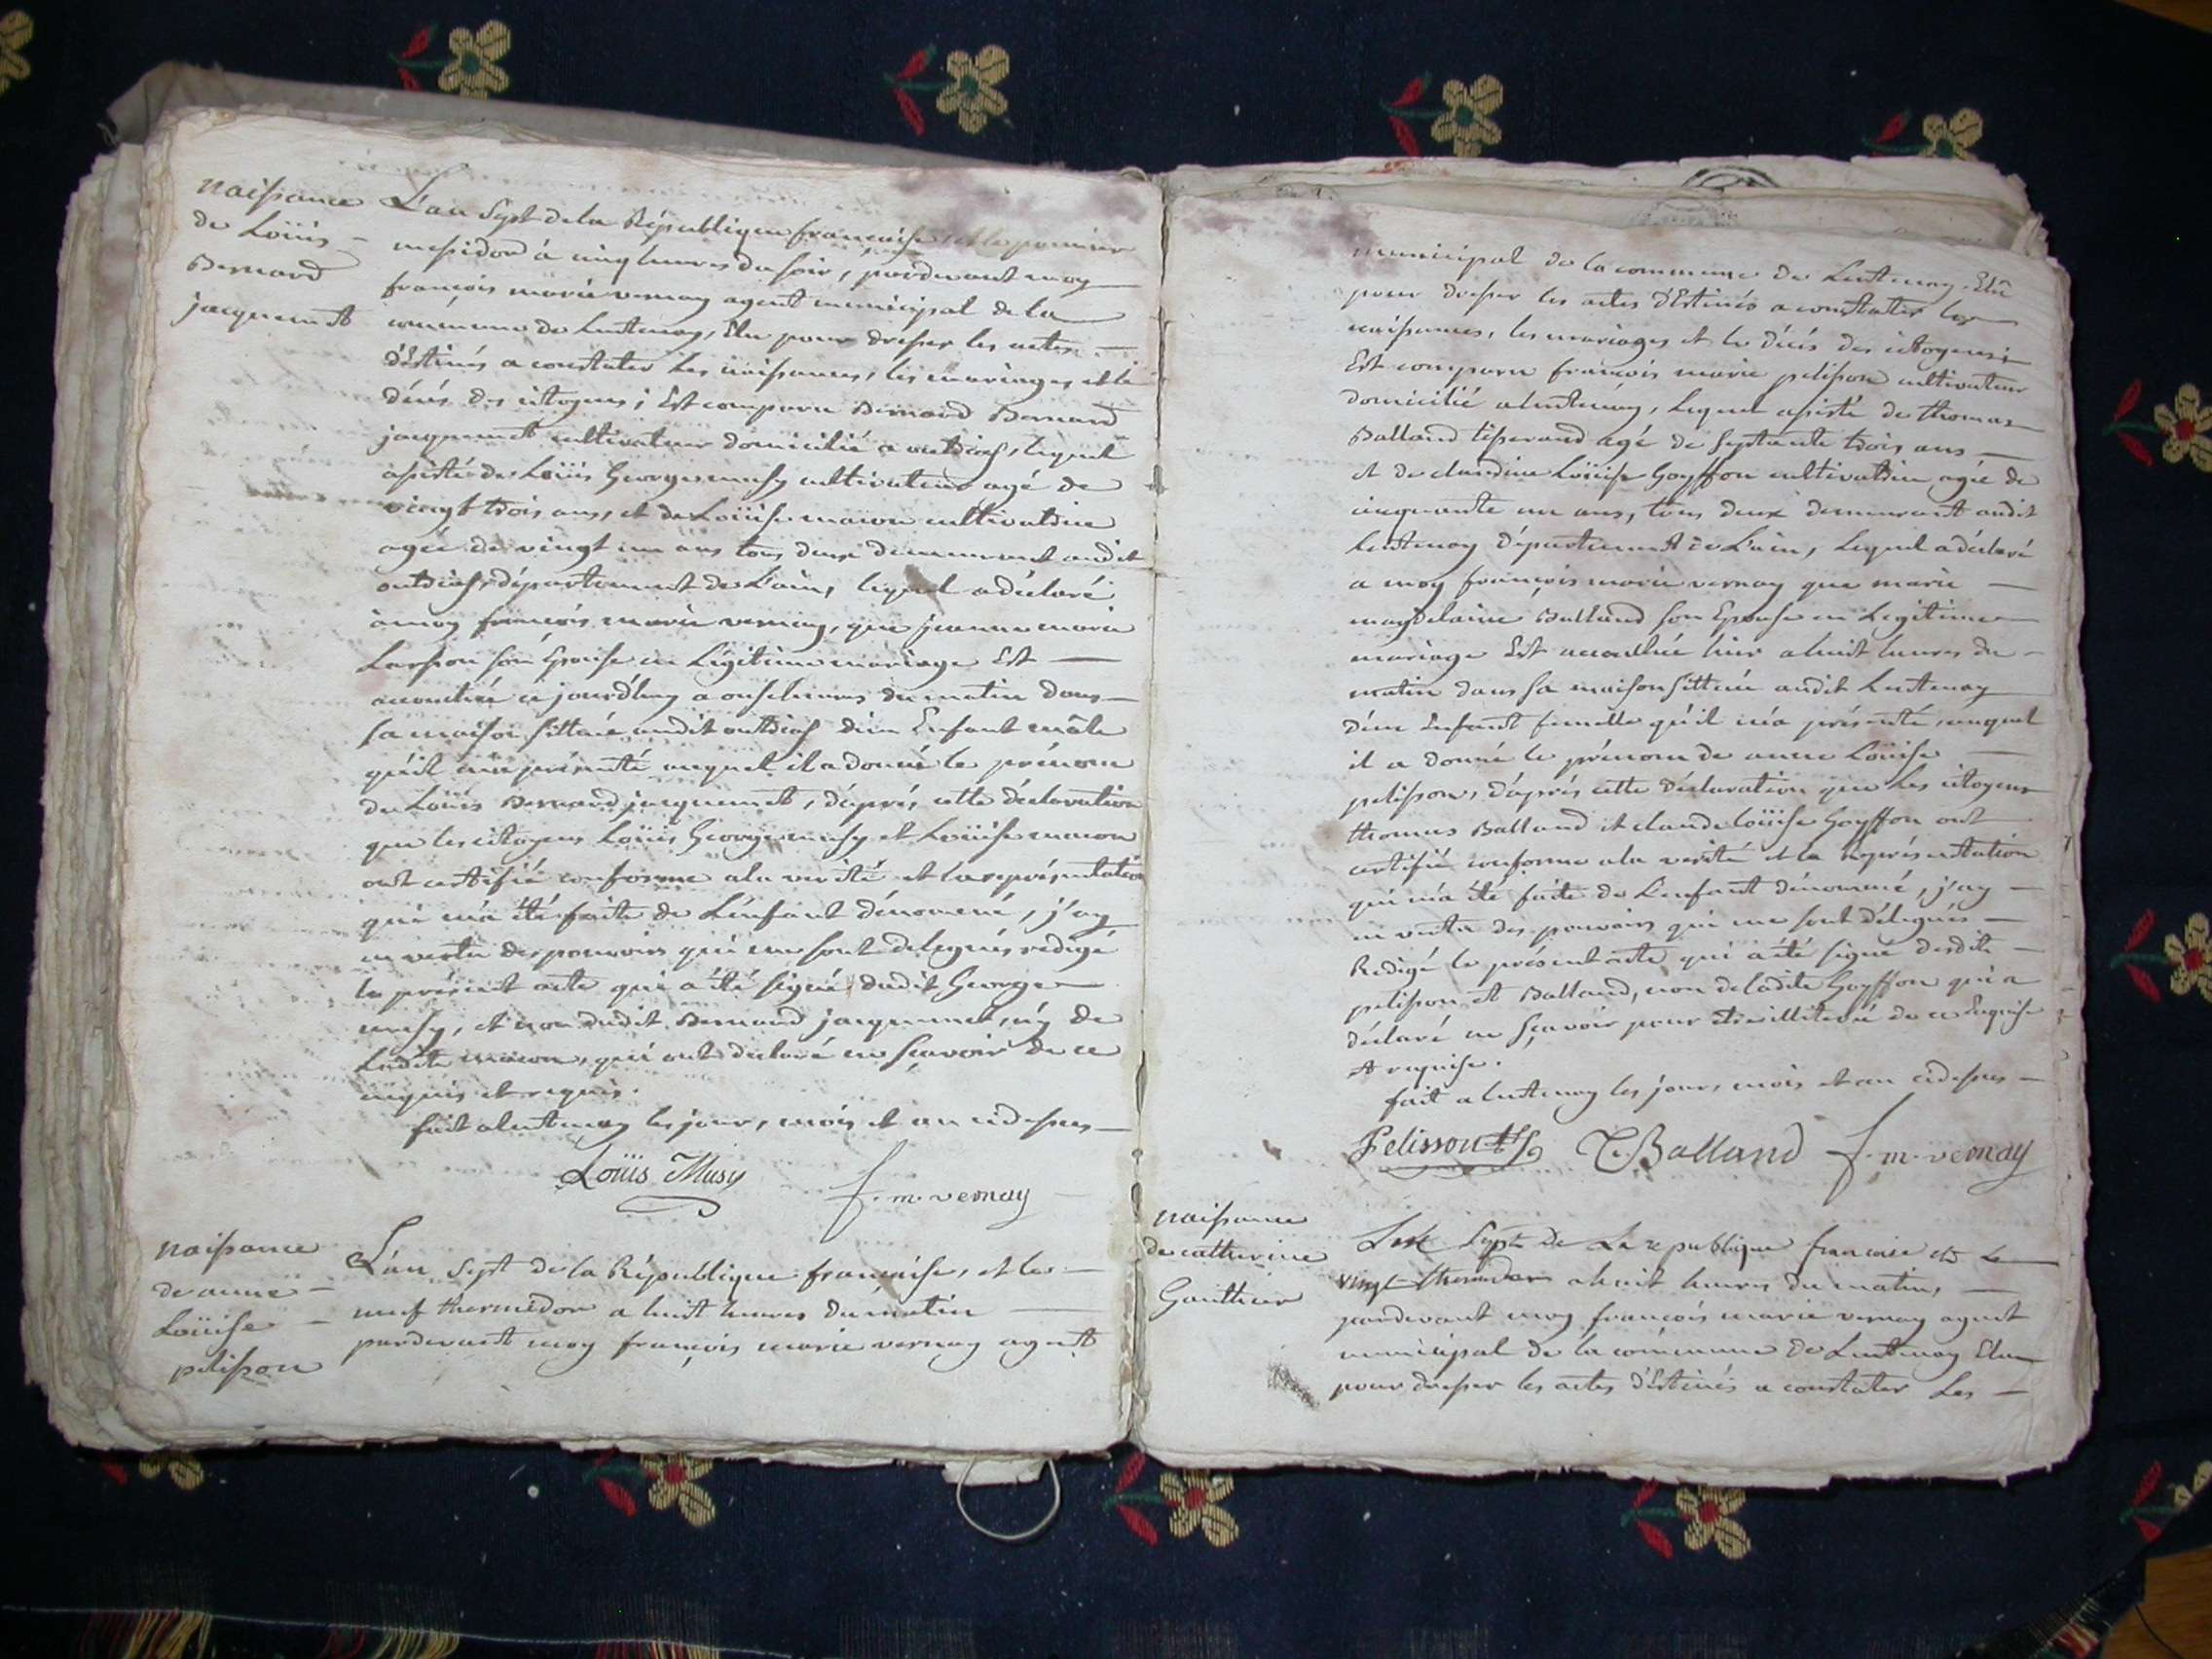 naissance
de Loüis
Bernard
jacquemet
L'an Sept de la République francaise et le premier
messidor à cinq heures du soir, pardevant moy
françois marie vernay agent municipal de la
commune de Lentenay, Elu pour dresser les actes
d'Estinés a constater les naissances, les mariages et le
décés des citoyens; Est comparu Bernard Bernard
jacquemet cultivateur domicilié a outriaf, lequel
assisté de Loüis George musy cultivateur agé de
vingt trois ans, et de Loüise macon cultivatrice
agée de vingt un ans tous deux demeurant audit
outriaf, département de L'ain, lequel a déclaré
à moy françois marie vernay, que jeanne marie
son Epouse en Légitime mariage Est
accouchée ce jourd'huy a onse heures du matin dans
sa maison sittuée audit outriaf d'un Enfant mâle
qu'il m'a présenté auquel il a donné le prénom
de Loüis Bernard jacquemet, d'aprés cette déclaration
que les citoyens Loüis George musy et Loüise macon
ont certifié conforme a la verité et la représentation
qui m'a été faite de L'enfant dénomené, j'ay
en vertu des pouvoirs qui me sont delegués redigé
le présent acte qui a été signé dudit George
musy, et non dudit Bernard jacquemet, n'y de
Ladite macon, qui ont declaré ne sçavoir de ce
enquis et requis.
fait a lentenay les jour, mois et an cidessus
Loüis Musy f. m. vernay
naissance
de anne
Loüise
pelisson
L'an Sept de la République française, et le
neuf thermidor a huit heures du matin
pardevant moy françois marie vernay agent
municipal de la commune de Lentenay Elû
pour dresser les actes d'Estinés a constater les
naissances, les mariages et le décés des citoyens;
Est comparu françois marie pelisson cultivateur
domicilié a lentenay, lequel assisté de thomas
Balland tisserand agé de septante trois ans
et de claudine Loüise Goyffon cultivatrice agée de
cinquante un ans, tous deux demeurant audit
Lentenay département de L'ain, lequel a déclaré
a moy françois marie vernay que marie
magdelaine Balland son Epouse en Legitime
mariage Est accouchée hier a huit heures du
matin dans sa maison sittuée audit lentenay
d'un Enfant femelle qu'il m'a présenté, auquel
il a donné le prénom de anne Loüise
pelisson, d'aprés cette déclaration que Les citoyens
thomas Balland et claude loüise Goyffon ont
certifié conforme a la verité et la représentation
qui m'a été faite de L'enfant dénommé, j'ay
en vertu des pouvoirs qui me sont délegués
Redigé le présent acte qui a été signé desdits
pelisson et Balland, non de ladite Goyffon qui a
déclaré ne sçavoir pour être illiterée de ce Enquise
et requise.
fait a lentenay les jours, mois et an cidessus
Pelisson T. Balland f. m. vernay
naissance
de catherine
Gauthier
L'an Sept de La république francaise et Le
vingt thermidor a huit heures du matin,
pardevant moy françois marie vernay agent
municipal de la commune de Lentenay Elu
pour dresser les actes d'Estinés a constater Les